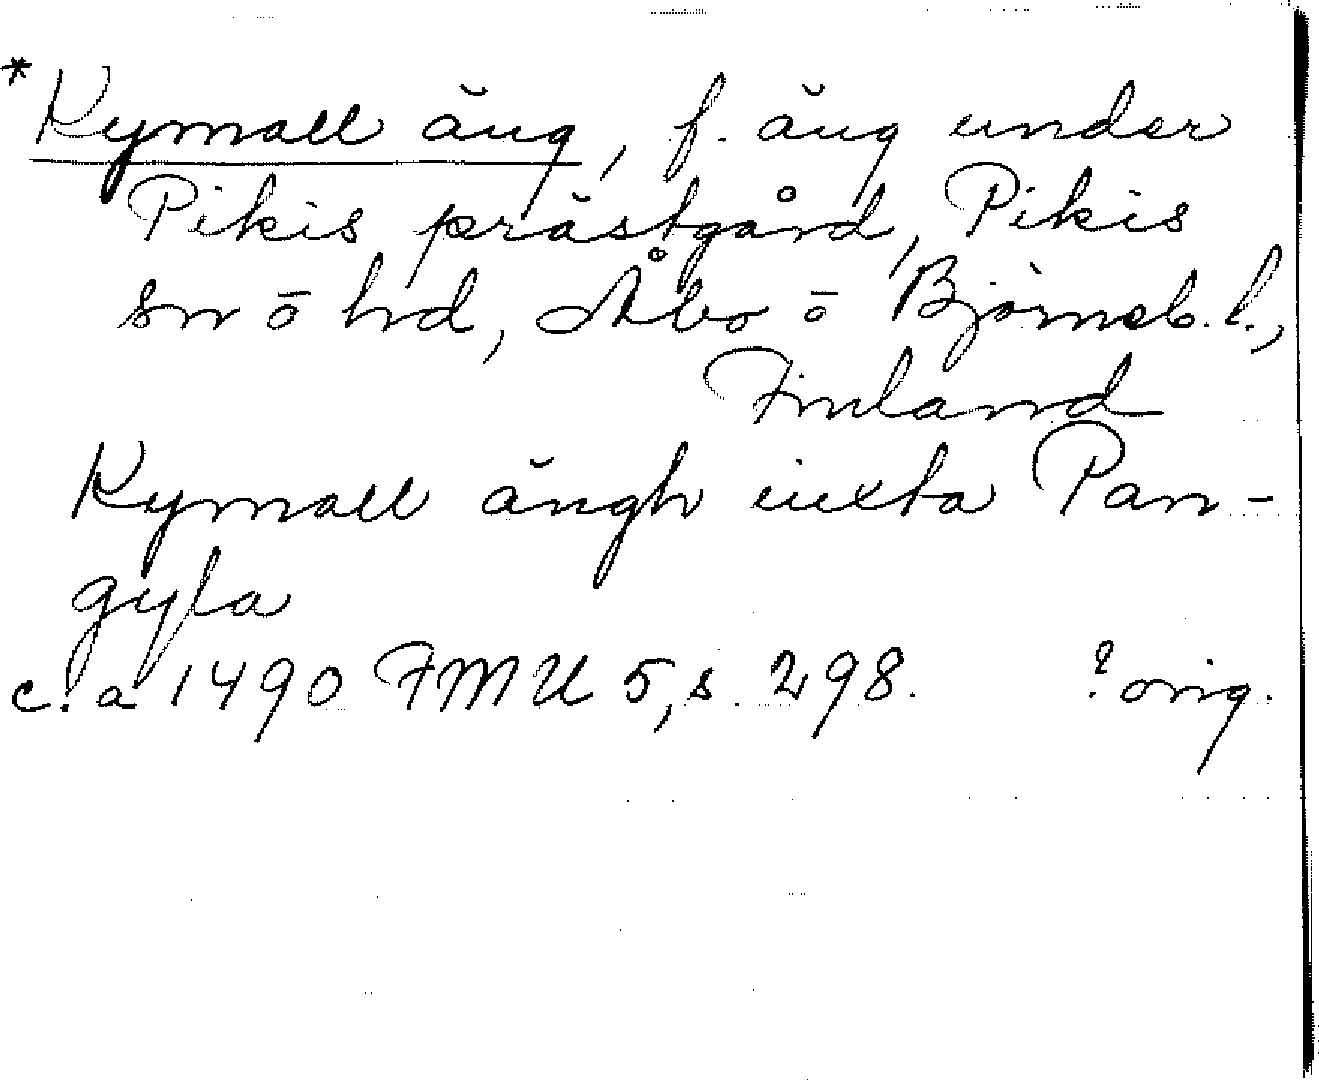 *Kymall äng, f. äng under
Pikis prästgård, Pikis
sn ō hd, Åbo ō Björneb. l.,
Finland
Kymall ängh iuxta Pan-
gyla
c:a 1490 FMU 5, s. 298. ? orig.